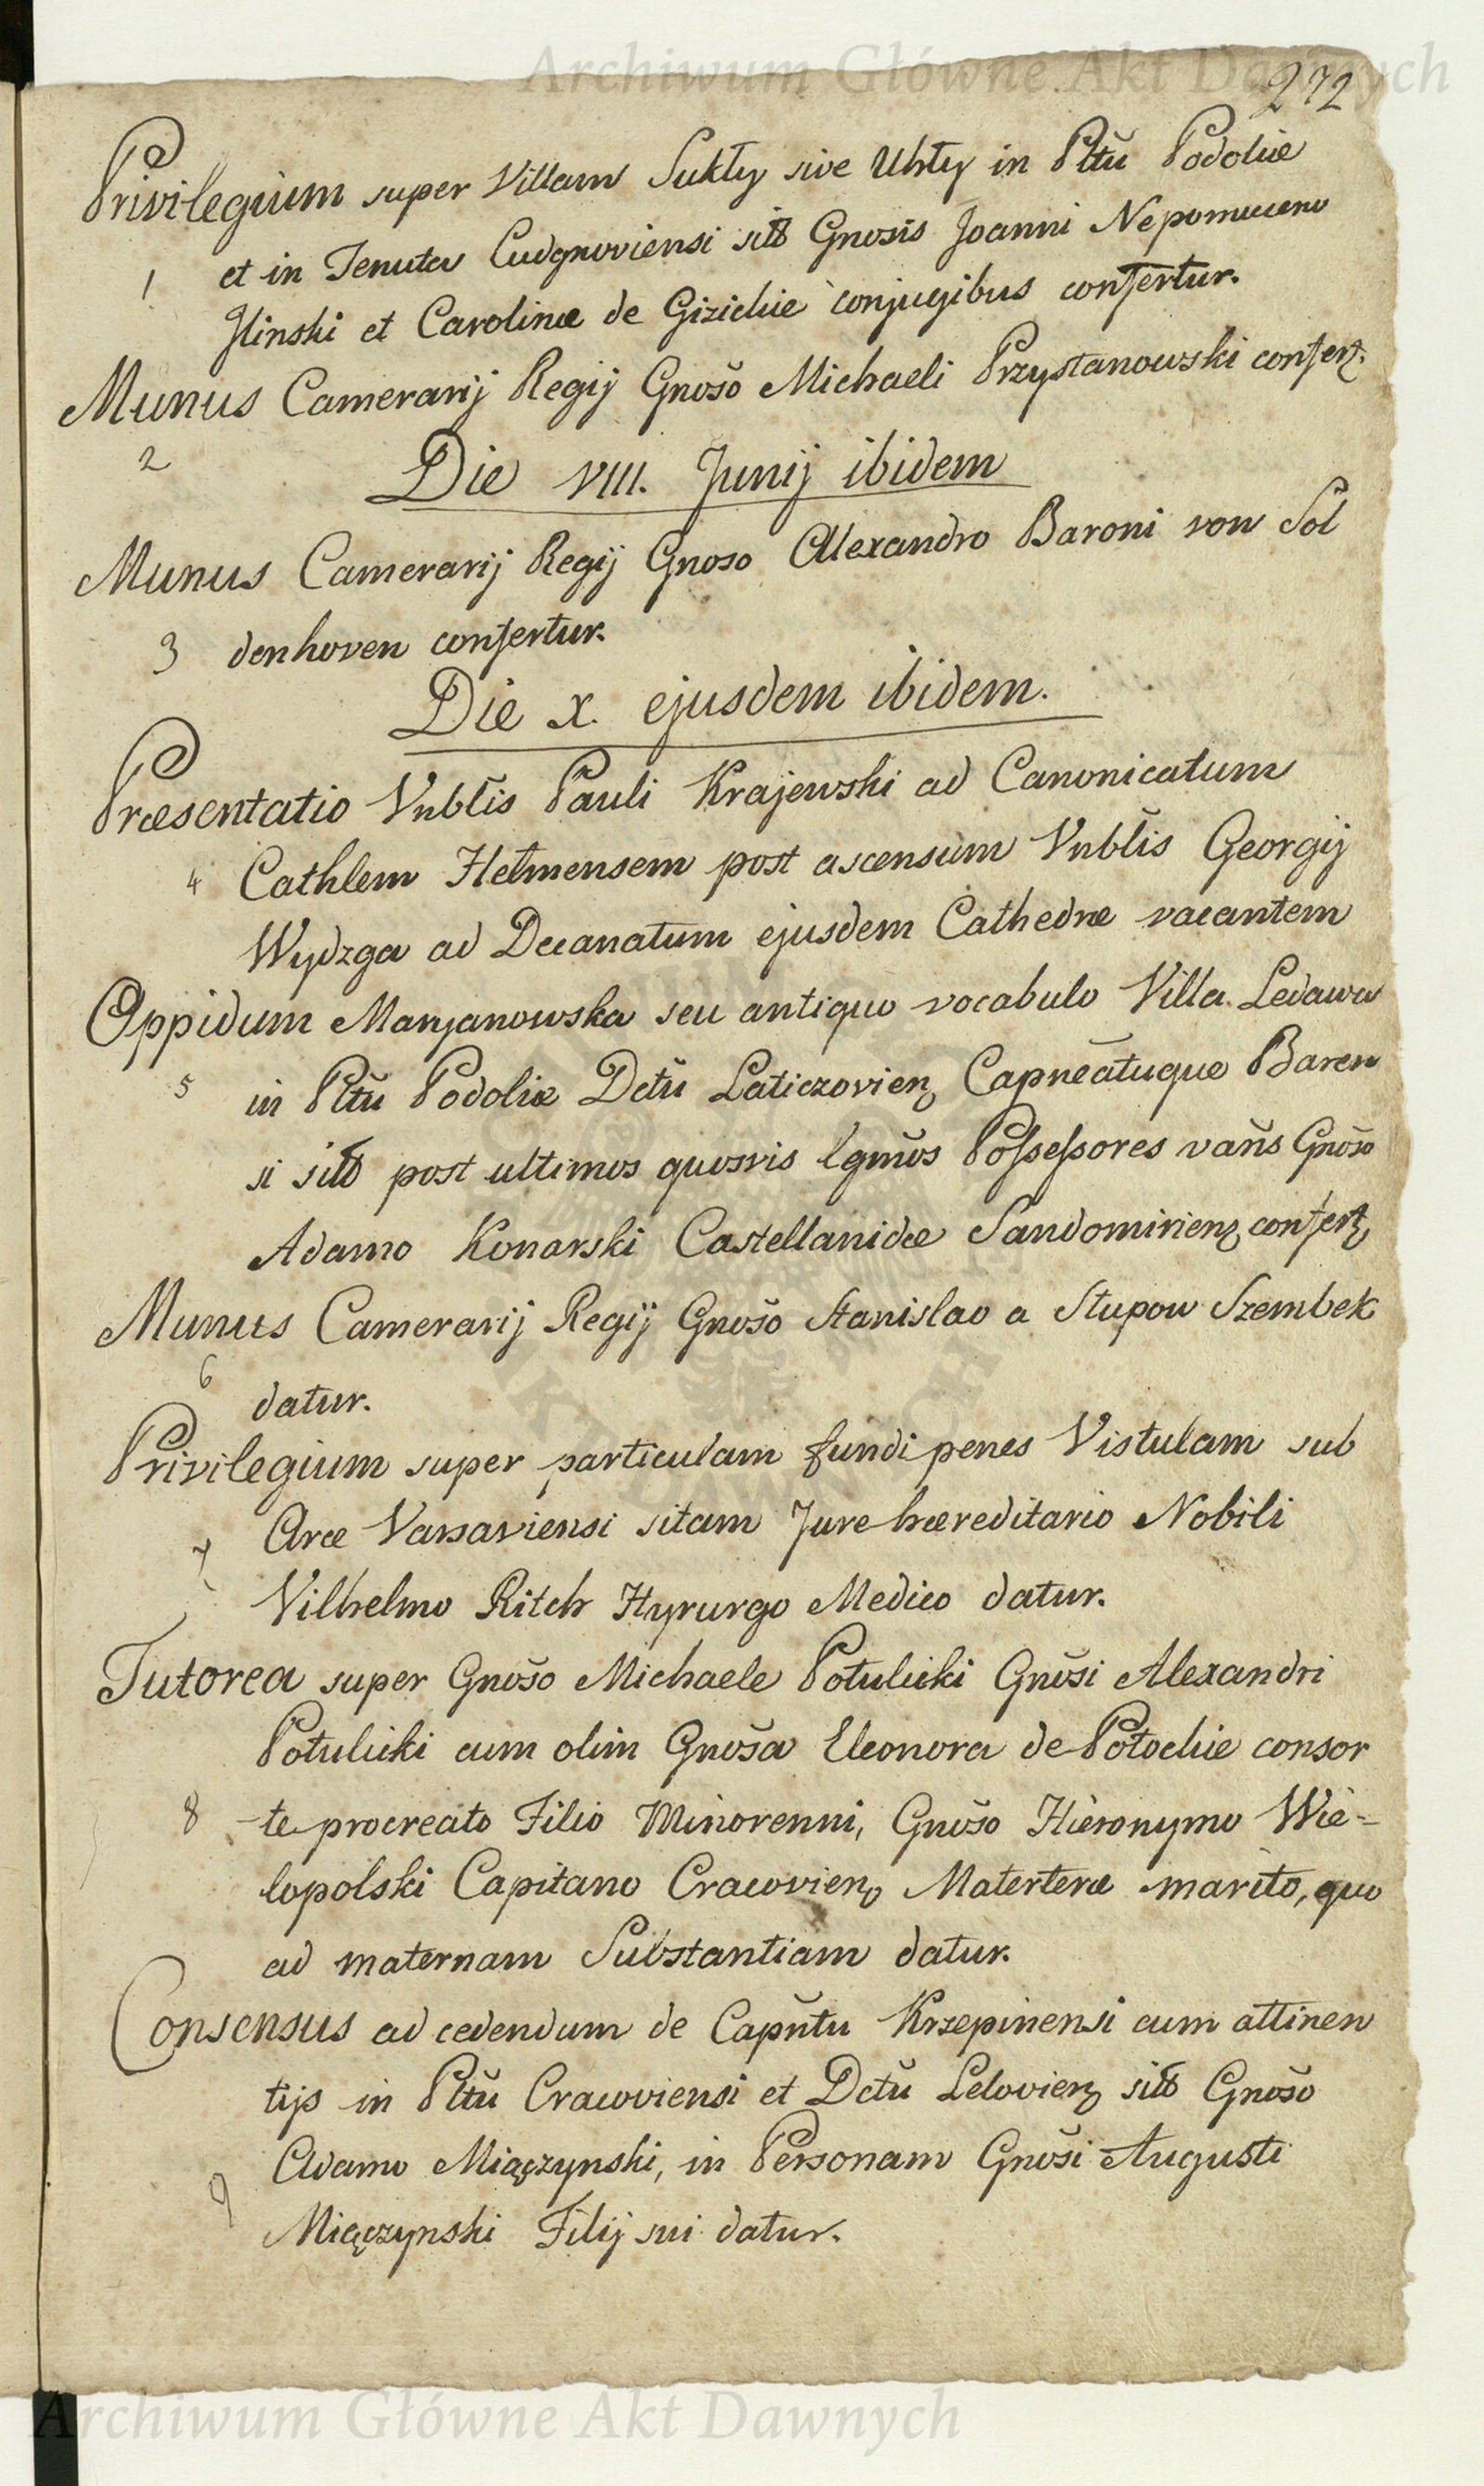 Archiwum Główne Akt Dawnych
272
Privilegium super Villam Sukły sive Uhły in Pltũ Podoliæ
1 et in Tenuta Cudgnoviensi sitõ Gnosis Joanni Nepomuceno
Jlinski et Carolinæ de Gizickie conjugibus confertur.
Munus Camerarij Regij Gnošo Michaeli Przystanowski confertʒ.
2
Die VIII. Junij ibidem
Munus Camerarij Regij Gnoso Alexandro Baroni von Sol
3 denhoven confertur.
Die X. ejusdem ibidem.
Præsentatio Vnbĩlis Pauli Krajewski ad Canonicatum
4 Cathlem Helmensem post ascensum Vnbĩlis Georgij
Wydzga ad Decanatum ejusdem Cathedræ vacantem
Oppidum Maryanowska seu antiquo vocabulo Villa Ledawa
5 in Pltũ Podoliæ Dctũ Laticzovienʒ Capneãtuque Baren
si sitõ post ultimos quosvis lgmõs Possessores vañs Gnošo
Adamo Konarski Castellanidæ Sandomirienʒ confertʒ
Munus Camerarij Regij Gnošo Stanislao a Słupow Szembek
6
datur.
Privilegium super particulam fundi penes Vistulam sub
7 Arce Varsaviensi sitam Jure hæreditario Nobili
Vilhelmo Ritch Hyrurgo Medico datur.
Tutorea super Gnošo Michaele Potulicki Gnõsi Alexandri
Potulicki cum olim Gnoša Eleonora de Potockie consor
8 -te procreato Filio Minorenni, Gnošo Hieronymo Wie-
lopolski Capitano Cracovienʒ Materteræ marito, quo
ad maternam Substantiam datur.
Consensus ad cedendum de Capñtu Krzepinensi cum attinen
tijs in Pltũ Cracoviensi et Dctũ Lelovienʒ sitõ Gnošo
Adamo Miączynski, in Personam Gnõsi Augusti
9
Miączynski Filij sui datur.
Archiwum Główne Akt Dawnych